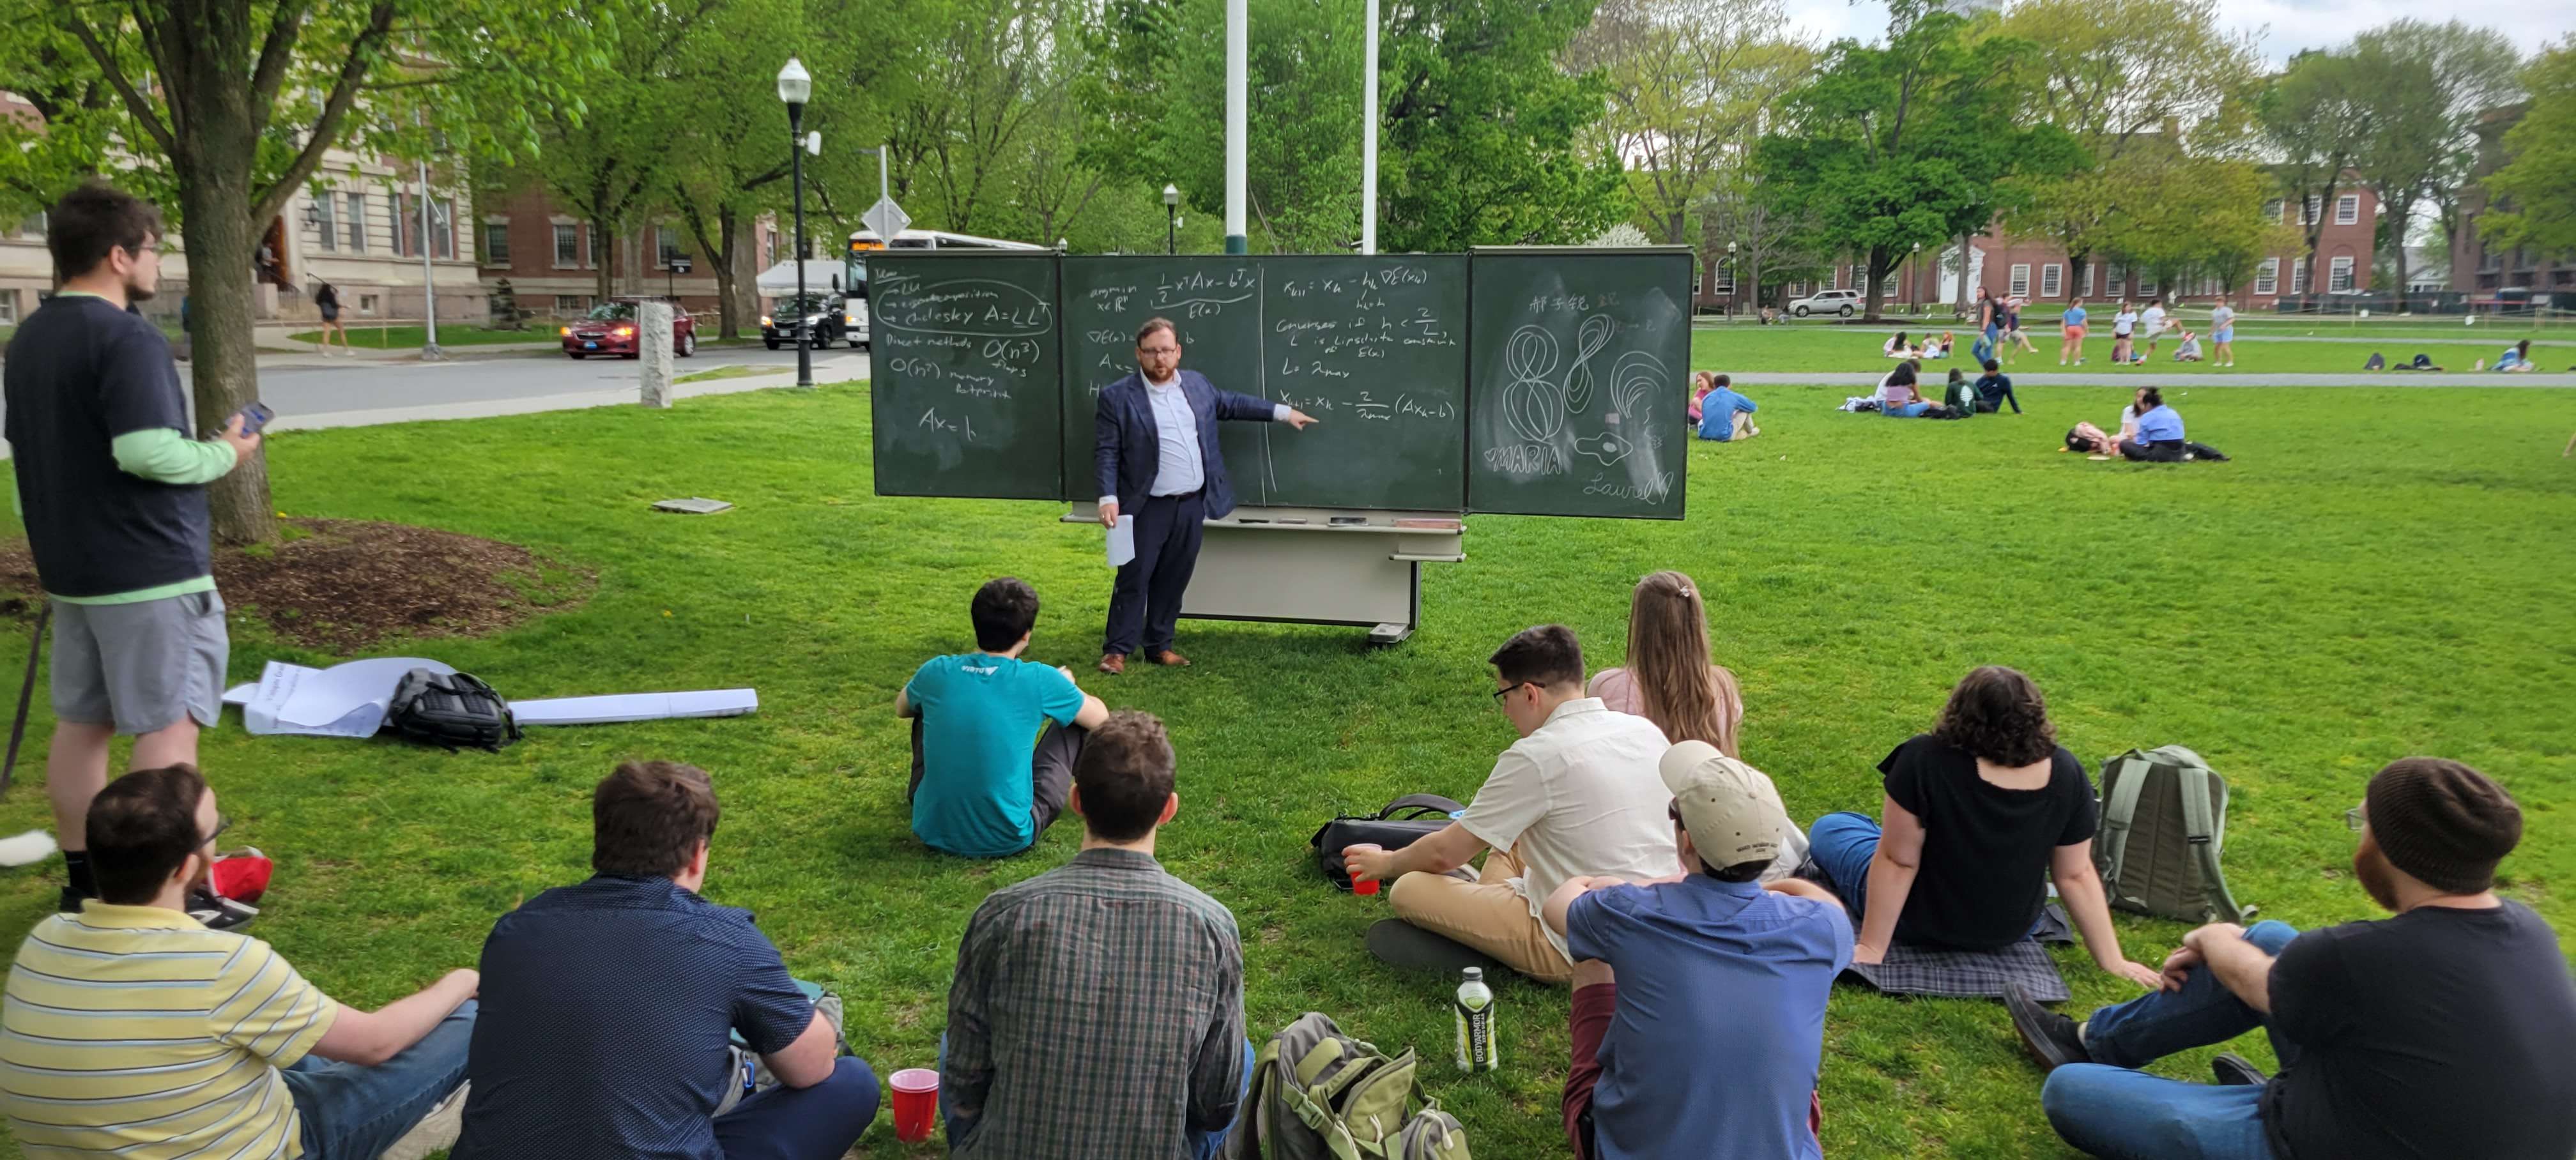 → LU
→ eigendecomposition
→ cholesky A = L Lᵀ
Direct methods O(n³)
flops
O(n²) memory
footprint
Ax = b
argmin
x∈ℝⁿ
½ xᵀAx - bᵀx
E(x)
∇E(x) =
b
A x =
H
xₖ₊₁ = xₖ - hₖ ∇E(xₖ)
hₖ = h
converges if h < 2/L,
L is Lipschitz constant
of E(x)
L = λmax
xₖ₊₁ = xₖ - 2/λmax (Axₖ - b)
郝子锐
♡MARIA
Laurel♡
BODYARMOR